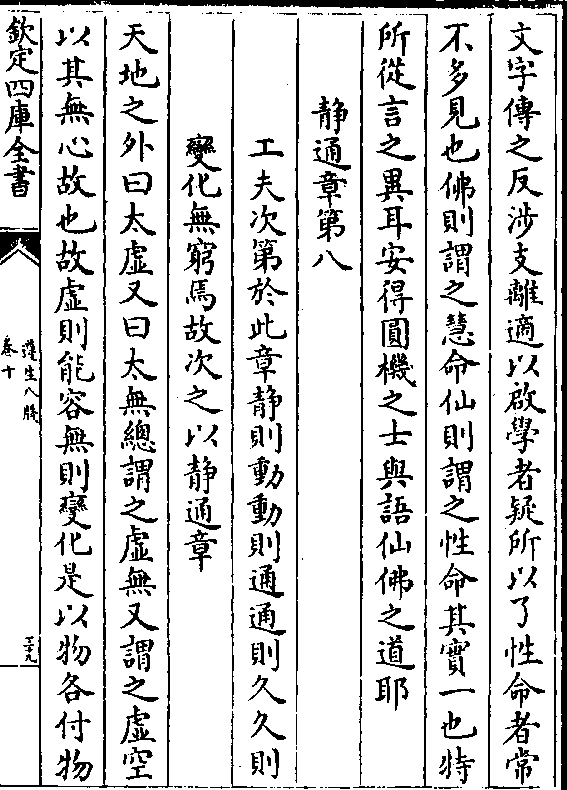 文字傳之反涉支離適以啟學者疑所以了性命者常
不多見也佛則謂之慧命仙則謂之性命其實一也特
所從言之異耳安得圓機之士與語仙佛之道耶
静通章第八
工夫次第於此章静則動動則通通則久久則
變化無窮焉故次之以静通章
天地之外曰太虚又曰太無總謂之虚無又謂之虚空
以其無心故也故虚則能容無則變化是以物各付物
欽定四庫全書
遵生八牋
卷十
三十九